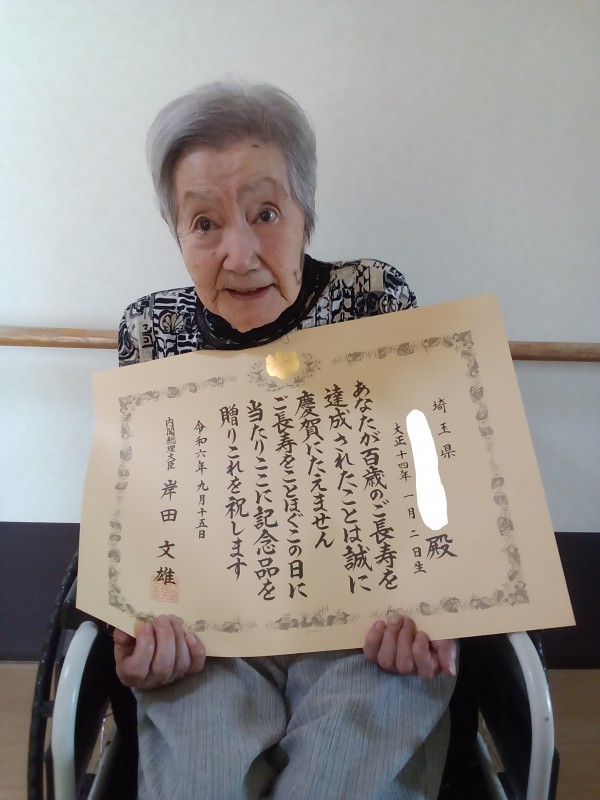 埼玉県
殿
大正十四年一月二日生
あなたが百歳のご長寿を
達成されたことは誠に
慶賀にたえません
ご長寿をことほぐこの日に
当たりここに記念品を
贈りこれを祝します
令和六年九月十五日
内閣総理大臣 岸田文雄